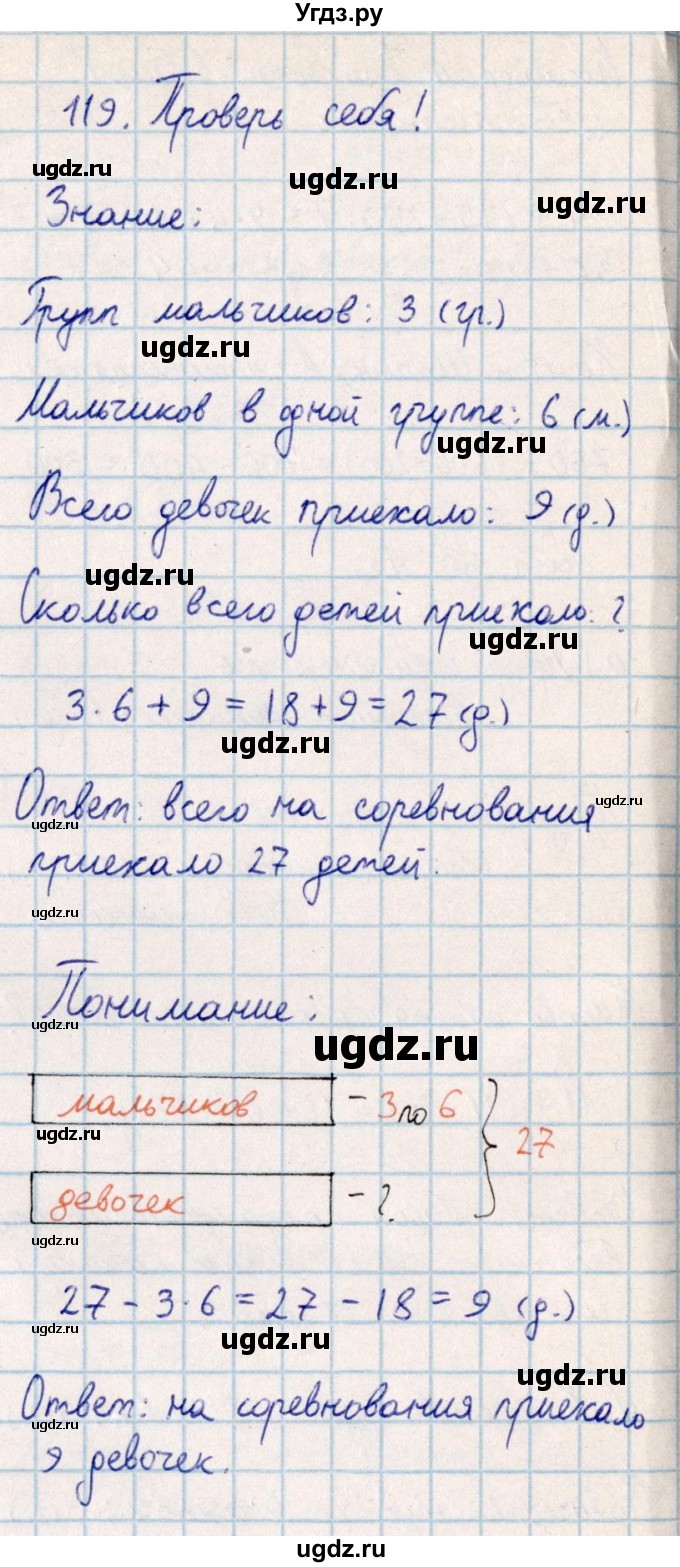 Угдз.ру
119. Проверь себя!
ugdz.ru
ugdz.ru
ugdz.ru
Знание:
Групп мальчиков: 3 (гр.)
ugdz.ru
Мальчиков в одной группе: 6 (м.)
ugdz.ru
Всего девочек приехало: 9 (д.)
ugdz.ru
Сколько всего детей приехало: ?
ugdz.ru
3 · 6 + 9 = 18 + 9 = 27 (д.)
ugdz.ru
Ответ: всего на соревнования
ugdz.ru
ugdz.ru
приехало 27 детей.
ugdz.ru
Понимание:
ugdz.ru
ugdz.ru
мальчиков - 3 по 6
ugdz.ru
27
девочек - ?
ugdz.ru
27 - 3 · 6 = 27 - 18 = 9 (д.)
ugdz.ru
ugdz.ru
ugdz.ru
Ответ: на соревнования приехало
ugdz.ru
9 девочек.
ugdz.ru